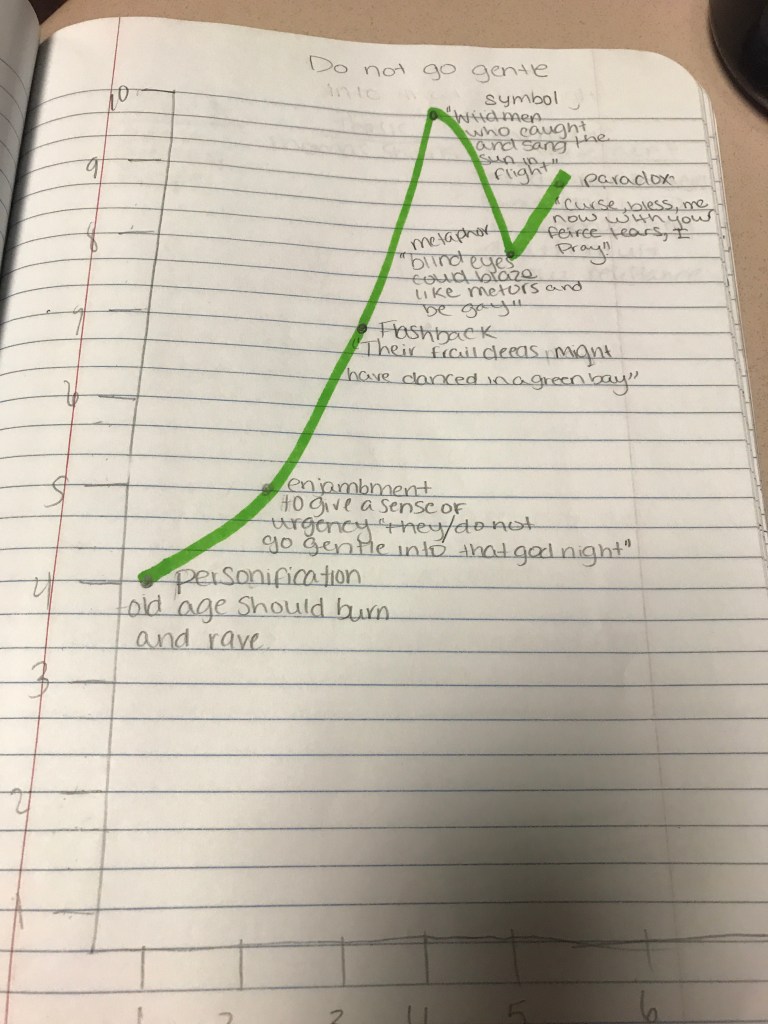 Do not go gentle
10
symbol
"Wild men
who caught
and sang the
sun in
flight"
9
paradox
"Curse, bless, me
now with your
feirce tears, I
Pray"
8
metaphor
"blind eyes
coud blaze
like metors and
be gay"
7
Flashback
"Their frail deeds, might
have danced in a green bay"
6
5
enjambment
to give a sense of
urgency "they/do not
go gentle into that god night"
4
personification
old age should burn
and rave
3
2
1
1 2 3 4 5 6